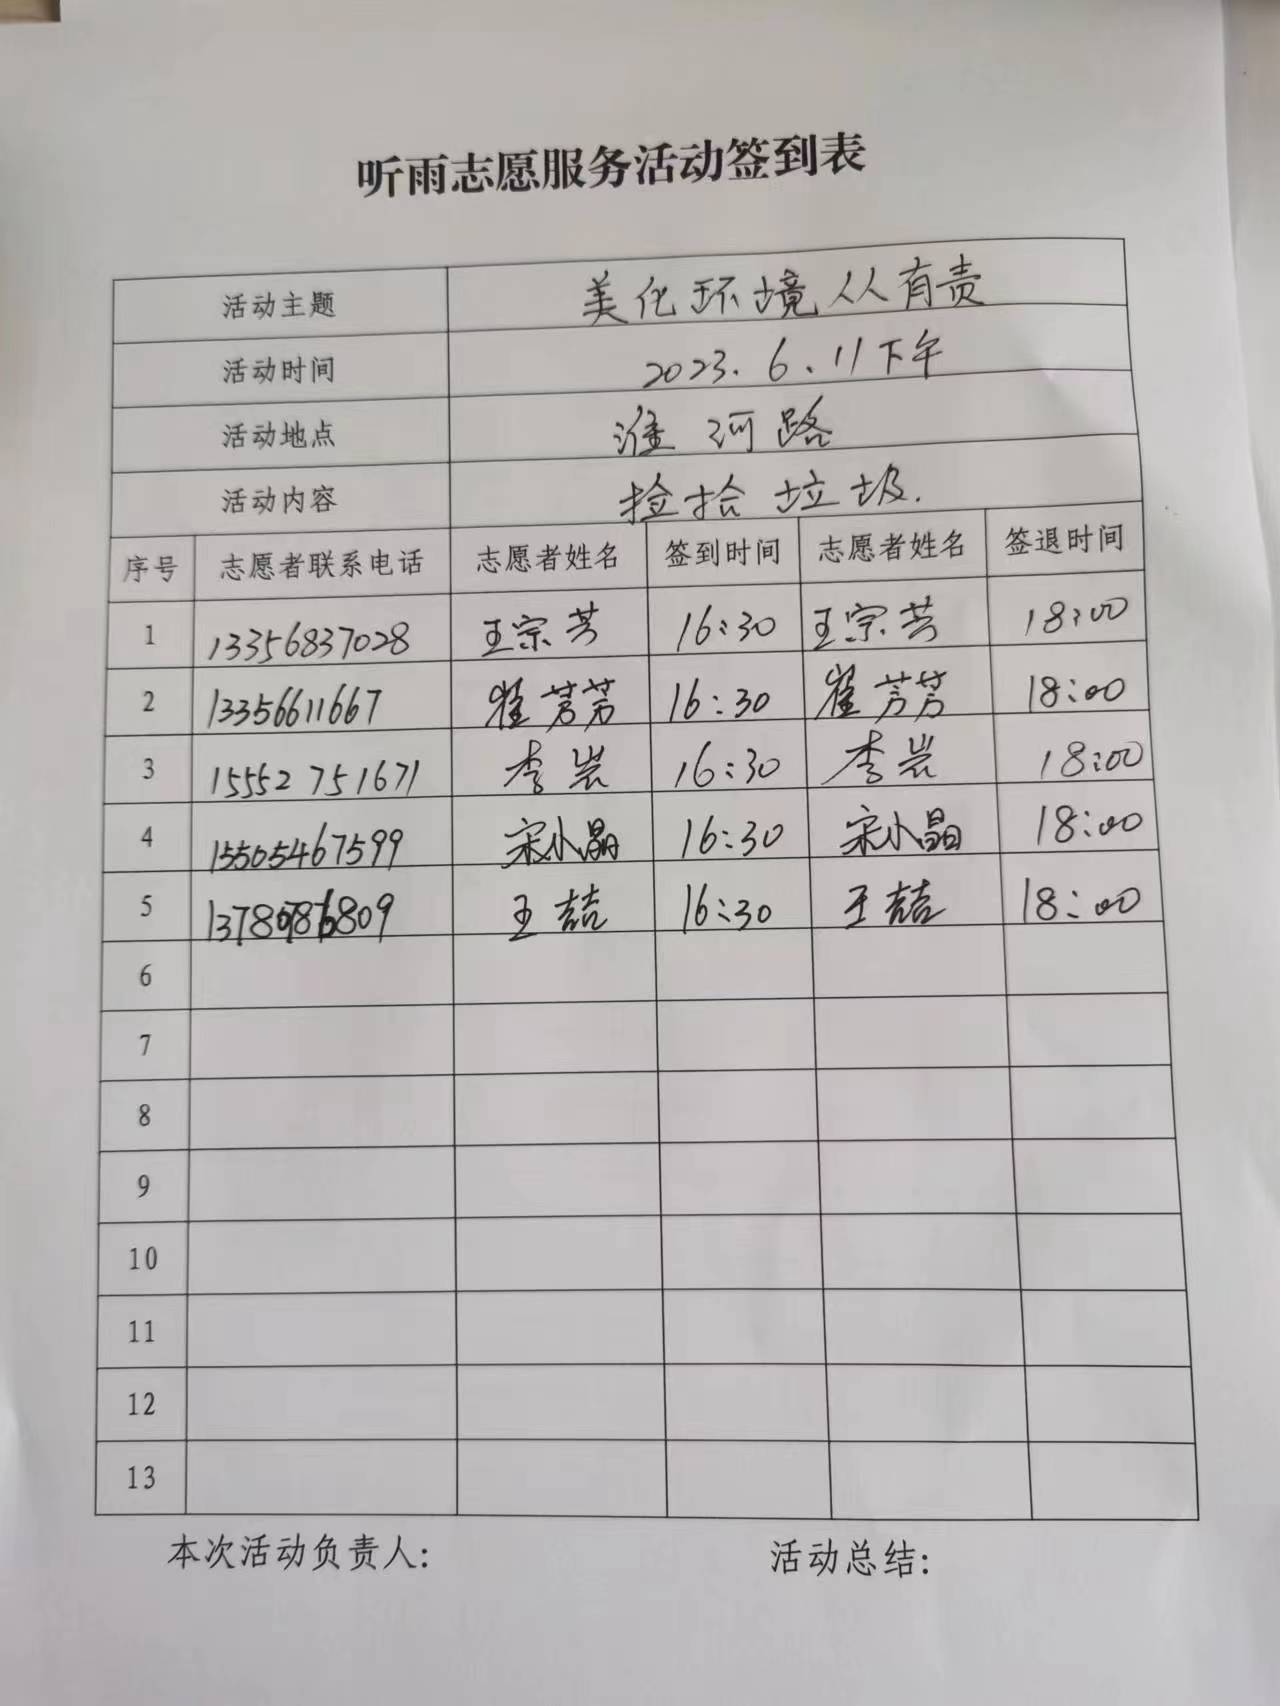 听雨志愿服务活动签到表
活动主题 美化环境人人有责
活动时间 2023.6.11下午
活动地点 淮河路
活动内容 捡拾垃圾.
序号 志愿者联系电话 志愿者姓名 签到时间 志愿者姓名 签退时间
1 13356837028 王宗芳 16:30 王宗芳 18:00
2 13356611667 崔芳芳 16:30 崔芳芳 18:00
3 15552751671 李岩 16:30 李岩 18:00
4 15505467599 宋小晶 16:30 宋小晶 18:00
5 王喆 16:30 王喆 18:00
6
7
8
9
10
11
12
13
本次活动负责人: 活动总结: